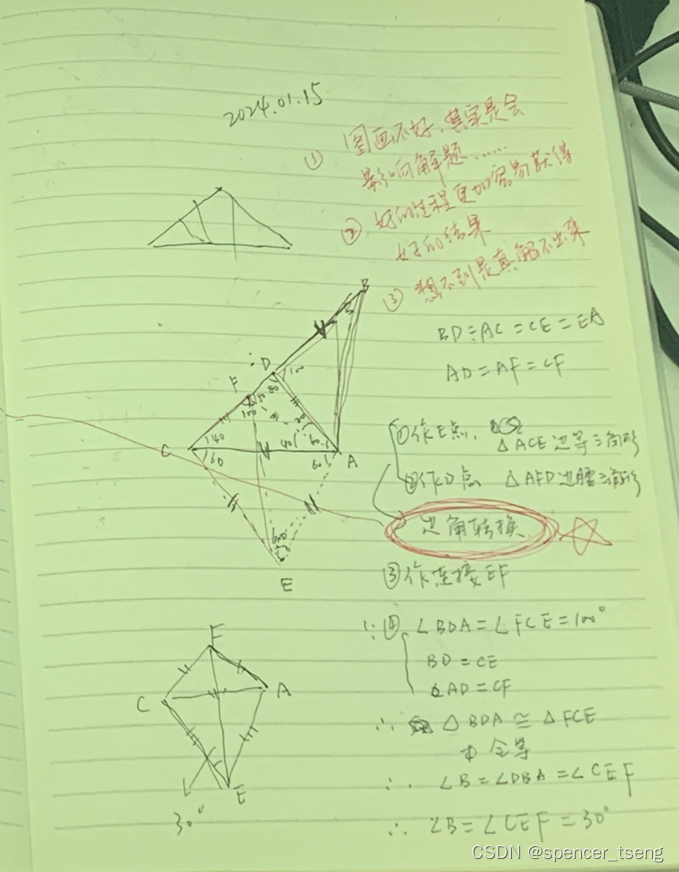 2024.01.15
① 图画不好，其实是会
影响解题……
② 好的过程更加容易获得
好的结果
③ 想不到是真解不出来
BD=AC=CE=EA
AD=AF=CF
①作E点, △ACE 边等三角形
②作D点 △AFD 边腰三角形
边角转换
③作连接EF
∵④ ∠BDA=∠FCE=100°
BD=CE
AD=CF
∴ △BDA≅△FCE
全等
∴ ∠B=∠DBA=∠CEF
∴ ∠B=∠CEF=30°
B
D
F
100
40
40
60
C
A
60
60
E
F
C
A
E
30°
CSDN @spencer_tseng